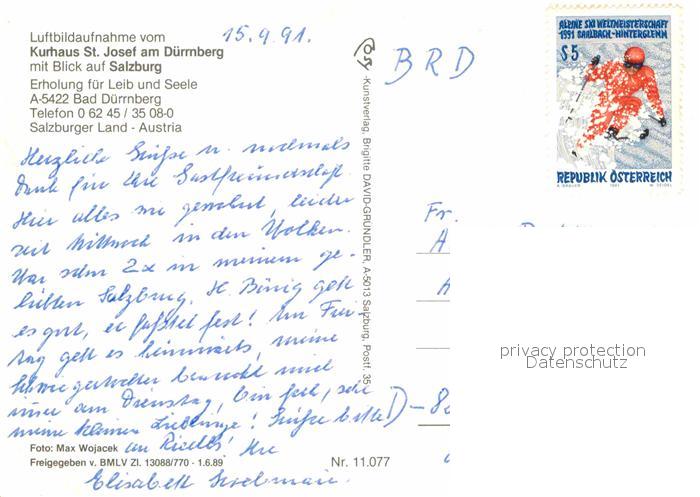 Luftbildaufnahme vom
Kurhaus St. Josef am Dürrnberg
mit Blick auf Salzburg
Erholung für Leib und Seele
A-5422 Bad Dürrnberg
Telefon 0 62 45 / 35 08-0
Salzburger Land - Austria
15.9.91.
Herzliche Grüße u. nochmals
Dank für Ihre Gastfreundschaft.
Hier alles wie gewohnt, leider
seit Mittwoch in den Wolken.
War schon 2x in meinem ge-
liebten Salzburg. H. geht
es gut, er fastet fest! Am Frei-
tag geht es heimwärts, meine
braucht mich
am Dienstag, bin froh,
meine kleinen Lieblinge! Grüße bitte
an Ihre
Elisabeth
Foto: Max Wojacek
Freigegeben v. BMLV Zl. 13088/770 - 1.6.89
Nr. 11.077
-Kunstverlag, Brigitte DAVID-GRUNDLER, A-5013 Salzburg, Postf. 35
BRD
ALPINE SKI WELTMEISTERSCHAFT
1991 SAALBACH-HINTERGLEMM
S 5
REPUBLIK ÖSTERREICH
1991
Fr.
A
A
D - 8
privacy protection
Datenschutz